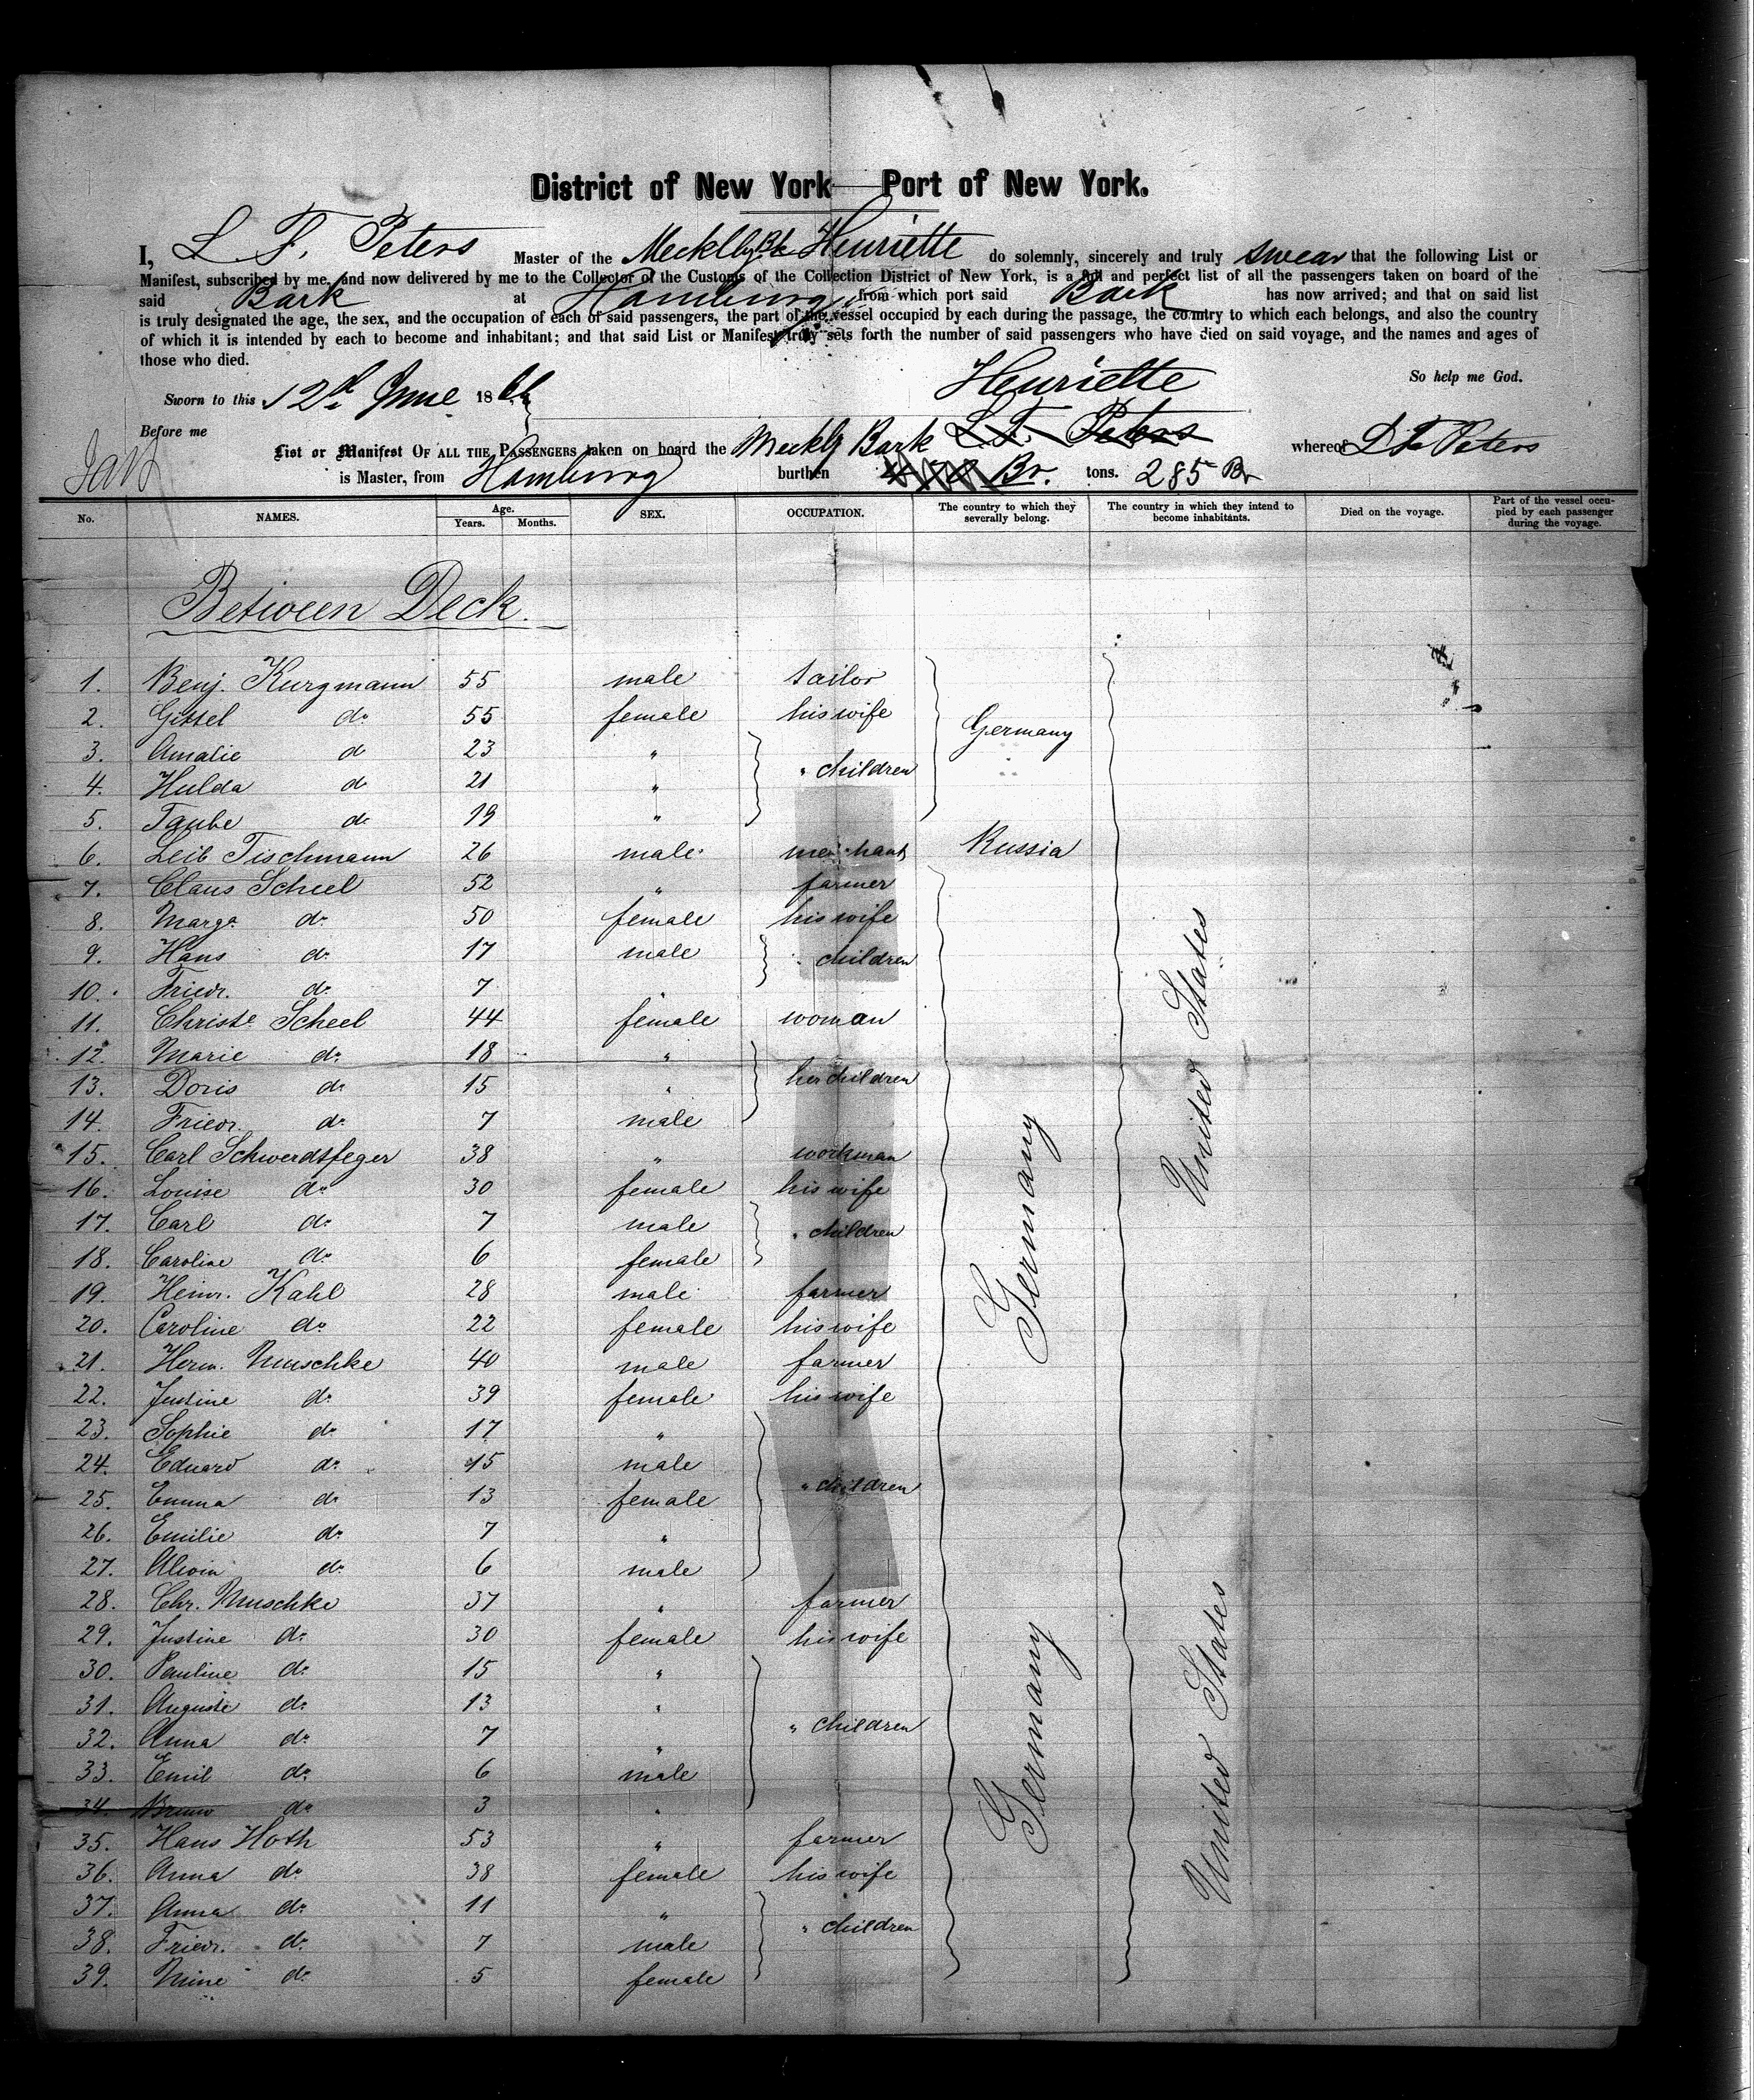 District of New York — Port of New York.
I, L. F. Peters Master of the Mecklbg Bk Henriette do solemnly, sincerely and truly swear that the following List or
Manifest, subscribed by me, and now delivered by me to the Collector of the Customs of the Collection District of New York, is a full and perfect list of all the passengers taken on board of the
said Bark at Hamburg from which port said Bark has now arrived; and that on said list
is truly designated the age, the sex, and the occupation of each of said passengers, the part of the vessel occupied by each during the passage, the country to which each belongs, and also the country
of which it is intended by each to become and inhabitant; and that said List or Manifest truly sets forth the number of said passengers who have died on said voyage, and the names and ages of
those who died.
So help me God.
Sworn to this 12th June 1866
Henriette
Before me
List or Manifest OF ALL THE PASSENGERS taken on board the Meckly Bark L. F. Peters whereof L F Peters
is Master, from Hamburg burthen Br. tons. 285 Br
No. NAMES. Age. Years. Months. SEX. OCCUPATION. The country to which they severally belong. The country in which they intend to become inhabitants. Died on the voyage. Part of the vessel occupied by each passenger during the voyage.
Between Deck.
1. Benj. Kurgmann 55 male tailor
2. Gittel do 55 female his wife Germany
3. Amalie do 23 "
4. Hulda do 21 " " children
5. Taube do 19 "
6. Leib Tischmann 26 male merchant Russia
7. Claus Scheel 52 " farmer
8. Marga do 50 female his wife
9. Hans do 17 male " children
10. Friedr. do 7 "
11. Christe Scheel 44 female woman
12. Marie do 18 "
13. Doris do 15 " her children
14. Friedr. do 7 male
15. Carl Schwerdtfeger 38 " workman
16. Louise do 30 female his wife
17. Carl do 7 male " children
18. Caroline do 6 female
19. Heinr. Kahl 28 male farmer Germany United States
20. Caroline do 22 female his wife
21. Herm. Nuschke 40 male farmer
22. Justine do 39 female his wife
23. Sophie do 17 "
24. Eduard do 15 male
25. Emma do 13 female " children
26. Emilie do 7 "
27. Alwin do 6 male
28. Chr. Nuschke 37 " farmer
29. Justine do 30 female his wife
30. Pauline do 15 "
31. Auguste do 13 "
32. Anna do 7 " " children Germany United States
33. Emil do 6 male
34. Bruno do 3 "
35. Hans Hoth 53 " farmer
36. Anna do 38 female his wife
37. Anna do 11 "
38. Friedr. do 7 male " children
39. Mine do 5 female